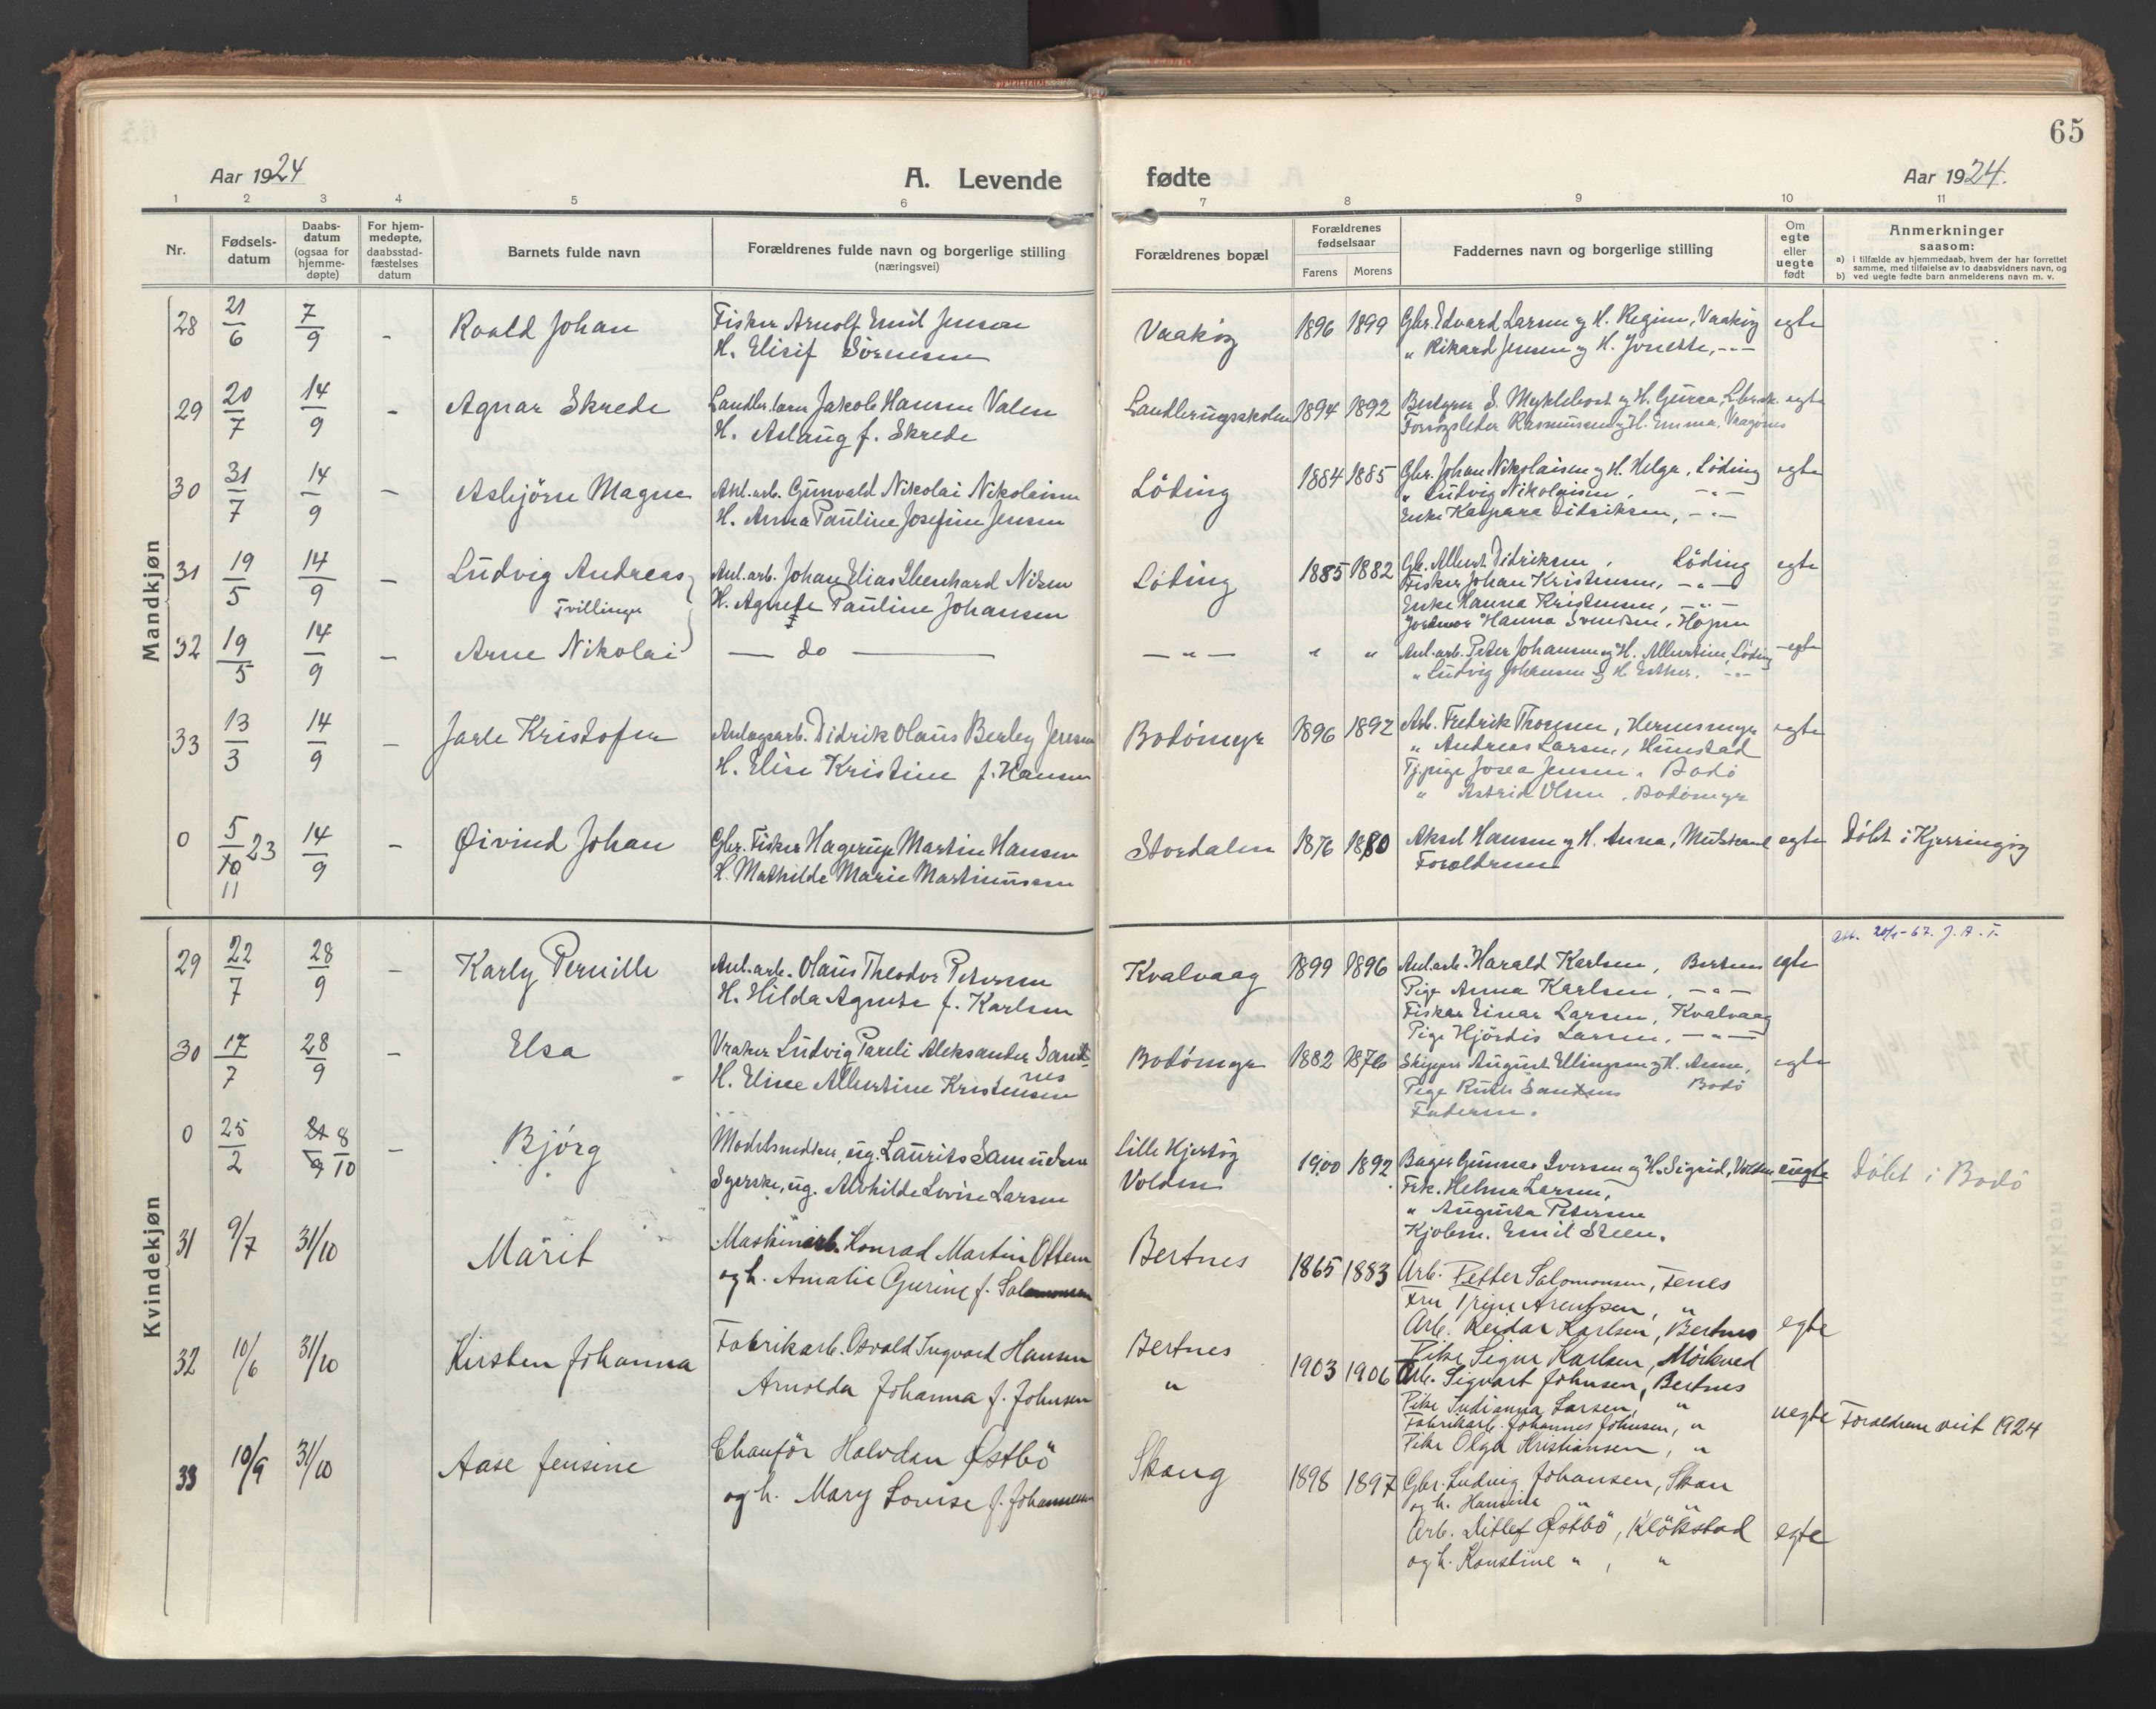 65
Aar 1924
A. Levende fødte
Aar 1924.
1 2 3 4 5 6 7 8 9 10 11
Nr.
Fødsels-
datum
Daabs-
datum
(ogsaa for
hjemme-
døpte)
For hjem-
medøpte,
daabsstad-
fæstelses
datum
Barnets fulde navn
Forældrenes fulde navn og borgerlige stilling
(næringsvei)
Forældrenes bopæl
Forældrenes
fødselsaar
Farens Morens
Faddernes navn og borgerlige stilling
Om
egte
eller
uegte
født
Anmerkninger
saasom:
a) i tilfælde av hjemmedaab, hvem der har forrettet
samme, med tilføielse av to daabsvidners navn, og
b) ved uegte fødte barn anmelderens navn m. v.
Mandkjøn
28 21/6 7/9 - Roald Johan Fisker Arnolf Emil Jensen Vaakøg 1896 1899 Gbr. Edvard Larsen og H. Regine, Vaakøg egte
H. Elisif Sørensen " Rikard Jensen og H. Jonette, -"-
29 20/7 14/9 - Agnar Skrede Landbr. lærer Jakob Hansen Valen Landbrugsskolen 1894 1892 Bestyrer S. Myklebost og H. Gurea, Lbr.sk. egte
H. Aslaug f. Skrede Forsøgsleder Rasmussen og H. Emma. Vaagønes
30 31/7 14/9 - Asbjørn Magne Anl. arb. Gunvald Nikolai Nikolaisen Løding 1884 1885 Gbr. Johan Nikolaisen og H. Helga, Løding egte
H. Anna Pauline Josefine Jensen " Ludvig Nikolaisen, -"-
Enke Kaspara Didriksen, -"-
31 19/5 14/9 - Ludvig Andreas Anl. arb. Johan Elias Ebenhard Nilsen Løding 1885 1882 Gb. Albert Didriksen, Løding egte
Tvillinger H. Agnete Pauline Johansen Fisker Johan Kristensen, -"-
Enke Hanna Kristensen, -"-
Jordmor Hanna Svendsen, Hopen
32 19/5 14/9 - Arne Nikolai — do — -"- " " Anl. arb. Peter Johansen og H. Albertine, Løding egte
" Ludvig Johansen og H. Esther. -"-
33 13/3 14/9 - Jarle Kristofer Anlagsarb. Didrik Olaus Berley Jensen Bodømyr 1896 1892 Arb. Fredrik Thoresen, Hernesmyr egte
H. Elise Kristine f. Hansen " Andreas Larsen, Hunstad
Tj.pige Josea Jensen, Bodø
" Astrid Olsen, Bodømyr
0 5/10 23 14/9 - Øivind Johan Gbr. Fisker Hagerup Martin Hansen Stordalen 1876 1880 Aksel Hansen og H. Anna, egte Døbt i Kjerringøy
11 H. Mathilde Marie Martinussen Forældrene
Kvindekjøn
Att. 20/1-67. J. A. T.
29 22/7 28/9 - Karly Pernille Anl. arb. Olaus Theodor Petersen Kvalvaag 1899 1896 Anl. arb. Harald Karlsen, Bertnes egte
H. Hilda Agnete f. Karlsen Pige Anna Karlsen, -"-
Fisker Einar Larsen, Kvalvaag
Pige Hjørdis Larsen, -"-
30 17/7 28/9 - Elsa Vraker Ludvig Pareli Aleksander Sand- Bodømyr 1882 1876 Skipper August Ellingsen og H. Anne, egte
nes
H. Elise Albertine Kristensen Pige Ruth Sandnes Bodø
Faderen.
0 25/2 21/9 8/10 - Bjørg Modelsnedker, ug. Laurits Samuelsen Lille Hjertøg 1900 1892 Bager Gunnar Iversen og H. Sigrid, Volden uegte Døbt i Bodø
Syerske, ug. Alvhilde Lovise Larsen Volden Frk. Helma Larsen,
" Augusta Petersen
Kjøbm. Emil Steen.
31 9/7 31/10 Marit Maskinarb. Konrad Martin Ottesen Bertnes 1865 1883 Arb. Petter Salomonsen, Fenes
og h. Amalie Gurine f. Salomonsen Fru Trine Arentsen, "
Arb. Reidar Karlsen, Bertnes egte
Pike Signe Karlsen, Mörkved
32 10/6 31/10 Kirsten Johanna Fabrikarb. Osvald Ingvard Hansen Bertnes 1903 1906 Arb. Sigvart Johnsen, Bertnes
Arnolda Johanna f. Johnsen " Pike Indianna Larsen, "
Fabrikarb. Johannes Johnsen, " uegte Forældrene viet 1924
Pike Olga Kristiansen, "
33 10/9 31/10 Aase Jensine Chauför Halvdan Østbö Skaug 1898 1897 Gbr. Ludvig Johansen, Skau
og h. Mary Lovise f. Johannessen og h. Hansine "
Arb. Ditlef Østbö, Klökstad egte
og h. Konstine " , "